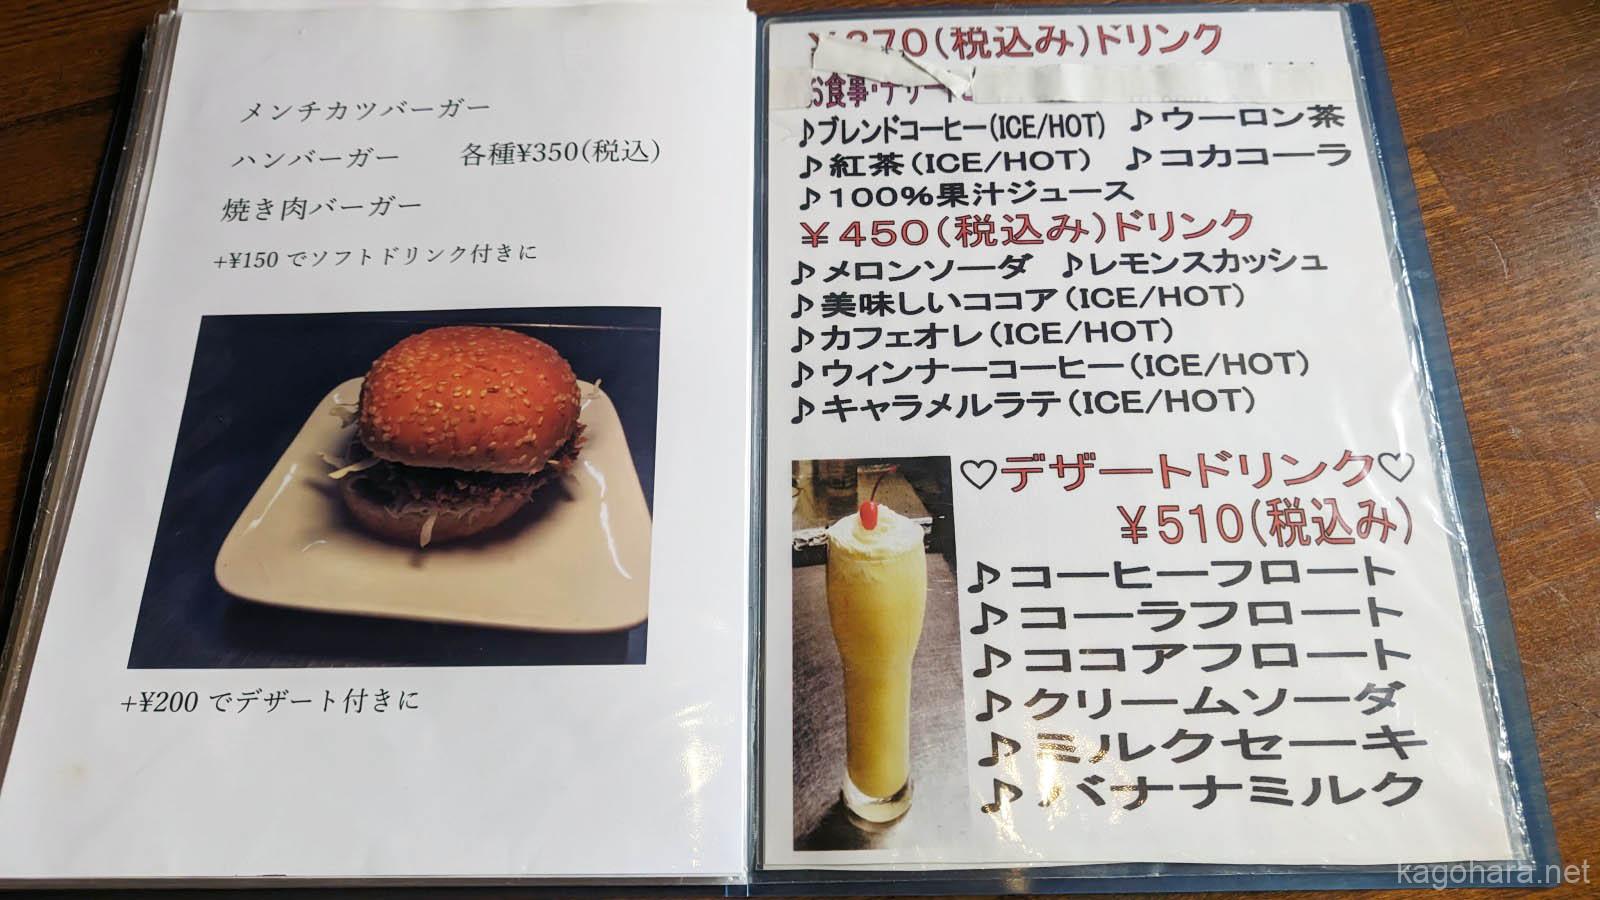 メンチカツバーガー
ハンバーガー 各種¥350(税込)
焼き肉バーガー
+¥150 でソフトドリンク付きに
+¥200 でデザート付きに
70(税込み)ドリンク
お食事・デザート
♪ブレンドコーヒー(ICE/HOT) ♪ウーロン茶
♪紅茶(ICE/HOT) ♪コカコーラ
♪100%果汁ジュース
¥450(税込み)ドリンク
♪メロンソーダ ♪レモンスカッシュ
♪美味しいココア(ICE/HOT)
♪カフェオレ(ICE/HOT)
♪ウィンナーコーヒー(ICE/HOT)
♪キャラメルラテ(ICE/HOT)
♡デザートドリンク♡
¥510(税込み)
♪コーヒーフロート
♪コーラフロート
♪ココアフロート
♪クリームソーダ
♪ミルクセーキ
♪バナナミルク
kagohara.net